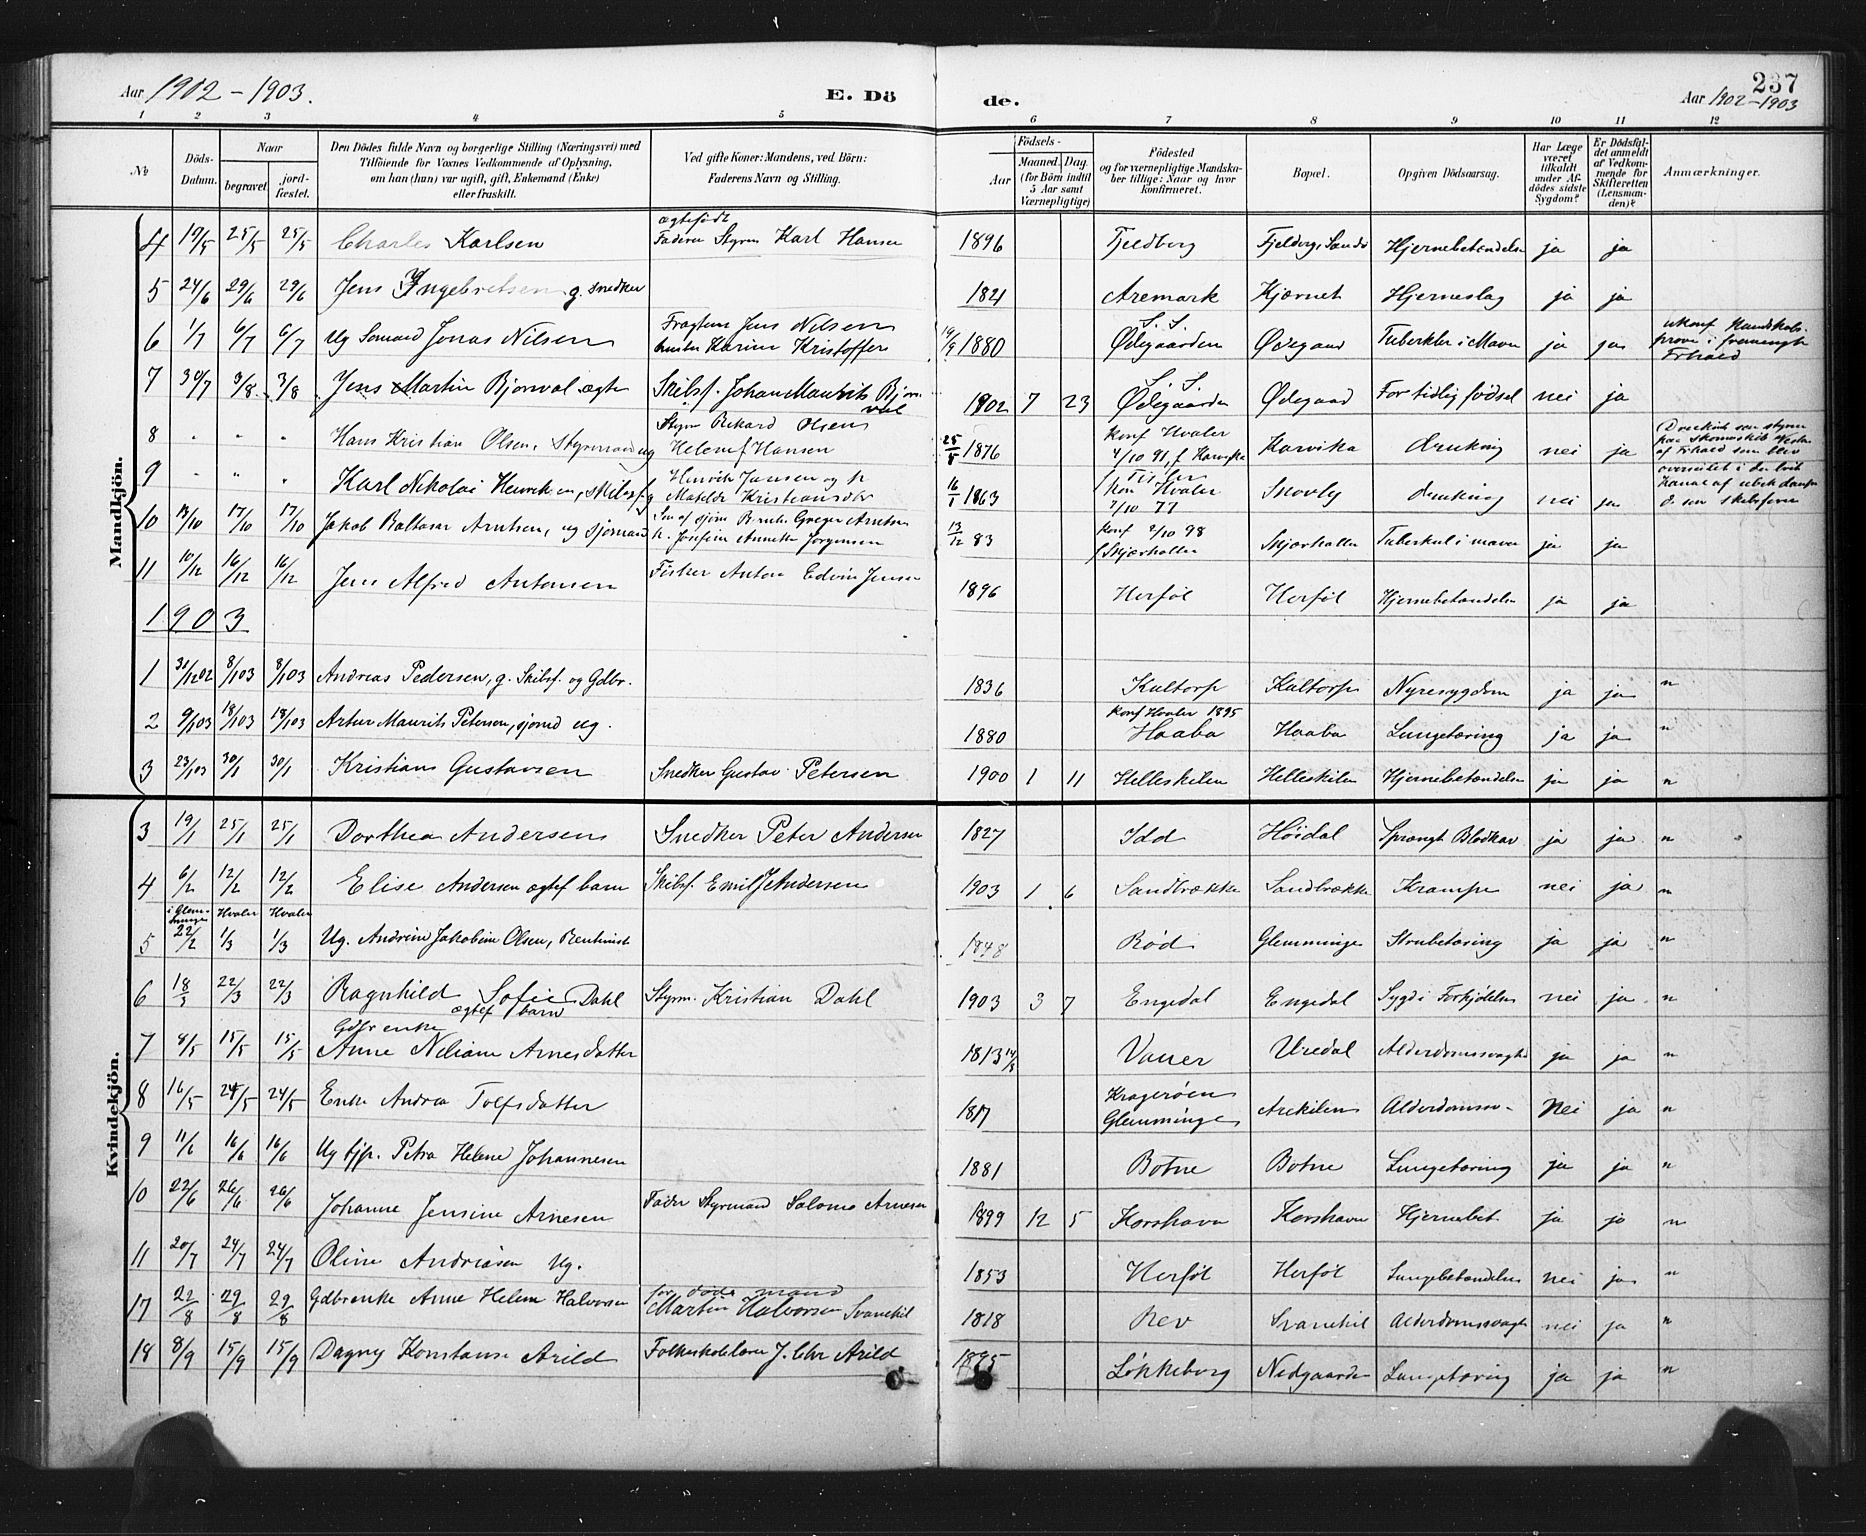 Aar 1902-1903.
E. Döde.
237
Aar 1902-1903
1 2 3 4 5 6 7 8 9 10 11 12
No
Döds-Datum.
Naar
begravet
jord-fæstet.
Den Dödes fulde Navn og borgerlige Stilling (Næringsvei) med
Tilföiende for Voxnes Vedkommende af Oplysning,
om han (hun) var ugift, gift, Enkemand (Enke)
eller fraskilt.
Ved gifte Koner: Mandens, ved Börn:
Faderens Navn og Stilling.
Födsels-
Aar
Maaned. Dag.
(for Börn indtil
5 Aar samt
Værnepligtige)
Födested
og for værnepligtige Mandska-
ber tillige: Naar og hvor
konfirmeret.
Bopæl.
Opgiven Dödsaarsag.
Har Læge
været
tilkaldt
under Af-
dödes sidste
Sygdom?
Er Dödsfal-
det anmeldt
af Vedkom-
mende for
Skifteretten
(Lensman-
den)?
Anmærkninger.
Mandkjön.
4 19/5 25/5 25/5 Charles Karlsen ægtefødt Fader Styrm Karl Hansen 1896 Fjeldberg Fjeldberg Sandø Hjernebetændelse ja ja
5 24/6 29/6 29/6 Jens Ingebretsen g. Snedker 1821 Aremark Kjærnet Hjerneslag ja ja
6 1/7 6/7 6/7 Ug Sømand Jonas Nilsen Fragtem Jens Nilsen hustru Karine Kristoffer 19/9 1880 S. S. Ødegaarden Ødegaard Tuberkler i Maven ja ja
7 30/7 3/8 3/8 Jens Martin Bjørval ægte Skibsf. Johan Maurits Bjørnval 1902 7 23 S. S. Ødegaarden Ødegaard For tidlig fødsel nei ja
8 " " " Hans Kristian Olsen, Styrmand ug Styrm Rikard Olsen Helene f Hansen 25/8 1876 Konf Hvaler 4/10 91, f Karvika Karvika drukning nei ja
9 " " " Karl Nikolai Henriksen, Skibsf g Henrik Jansen og h Matilde Kristiansdtr 16/1 1863 Kon Hvaler 7/10 77 Skovly drukning nei ja
10 13/10 17/10 17/10 Jakob Baltasar Arntsen, ug sjømand Søn af sjøm Greger Arntsen h. Josefine Annette Jørgensen 13/12 83 Konf 2/10 98 f Skjærhallen Skjærhallen Tuberkul i maven ja ja
11 10/12 16/12 16/12 Jens Alfred Antonsen Fisker Anton Edvin Jensen 1896 Herføl Herføl Hjernebetændelse ja ja
1903
1 31/12 02 8/1 03 8/1 03 Andreas Pedersen, g. Skibsf. og Gdbr. 1836 Kultorp Kultorp Nyresygdom ja ja n
2 9/1 03 18/1 03 18/1 03 Artur Maurits Petersen, sjømd ug. 1880 Konf Hvaler 1895 Haaba Haaba Lungetæring ja ja n
3 23/1 03 30/1 30/1 Kristian Gustavsen Snedker Gustav Petersen 1900 1 11 Helleskilen Helleskilen Hjernebetændelse ja ja n
Kvindekjön.
3 19/1 25/1 25/1 Dorthea Andersen Snedker Peter Andersen 1827 Idd Høidal Sprængt Blodkar ja ja n
4 6/2 12/2 12/2 Elise Andersen ægtef barn Skibsf. Emil J Andersen 1903 1 6 Sandbrække Sandbrække Krampe nei ja n
5 i Glemminge 22/2 Hvaler 1/3 Hvaler 1/3 Ug. Andrine Jakobine Olsen, Rentenist 1848 Rød Glemminge Strubetæring ja ja n
6 18/3 22/3 22/3 Ragnhild Sofie Dahl ægtef barn Styrm. Kristian Dahl 1903 3 7 Engedal Engedal Syg i Forkjølelse nei ja n
7 8/5 15/5 15/5 Gdbr enke Anne Neliane Arnesdatter 1813 14/3 Vauer Uredal Alderdomssvaghed ja ja n
8 16/5 24/5 24/5 Enke Andrea Tolfsdatter 1817 Kragerøen Glemminge Arekilen Alderdomssv. Nei ja n
9 11/6 16/6 16/6 Ug tjp. Petra Helene Johannesen 1881 Botne Botne Lungetæring ja ja n
10 22/6 26/6 26/6 Johanne Jensine Arnesen Fader Styrmand Salomo Arnesen 1899 12 5 Korshavn Korshavn Hjernebet ja ja n
11 20/7 24/7 24/7 Oline Andreasen Ug. 1853 Herføl Herføl Lungebetændelse nei ja n
17 22/8 29/8 29/8 Gdbrenke Anne Helene Halvorsen for døde mand Martin Halvorsen Svanekil 1818 Rev Svanekil Alderdomssvaghed nei ja n
18 8/9 15/9 15/9 Dagny Konstanse Arild Folkeskolelærer J. Chr Arild 1895 Løkkeborg Nedgaarden Lungetæring ja ja n